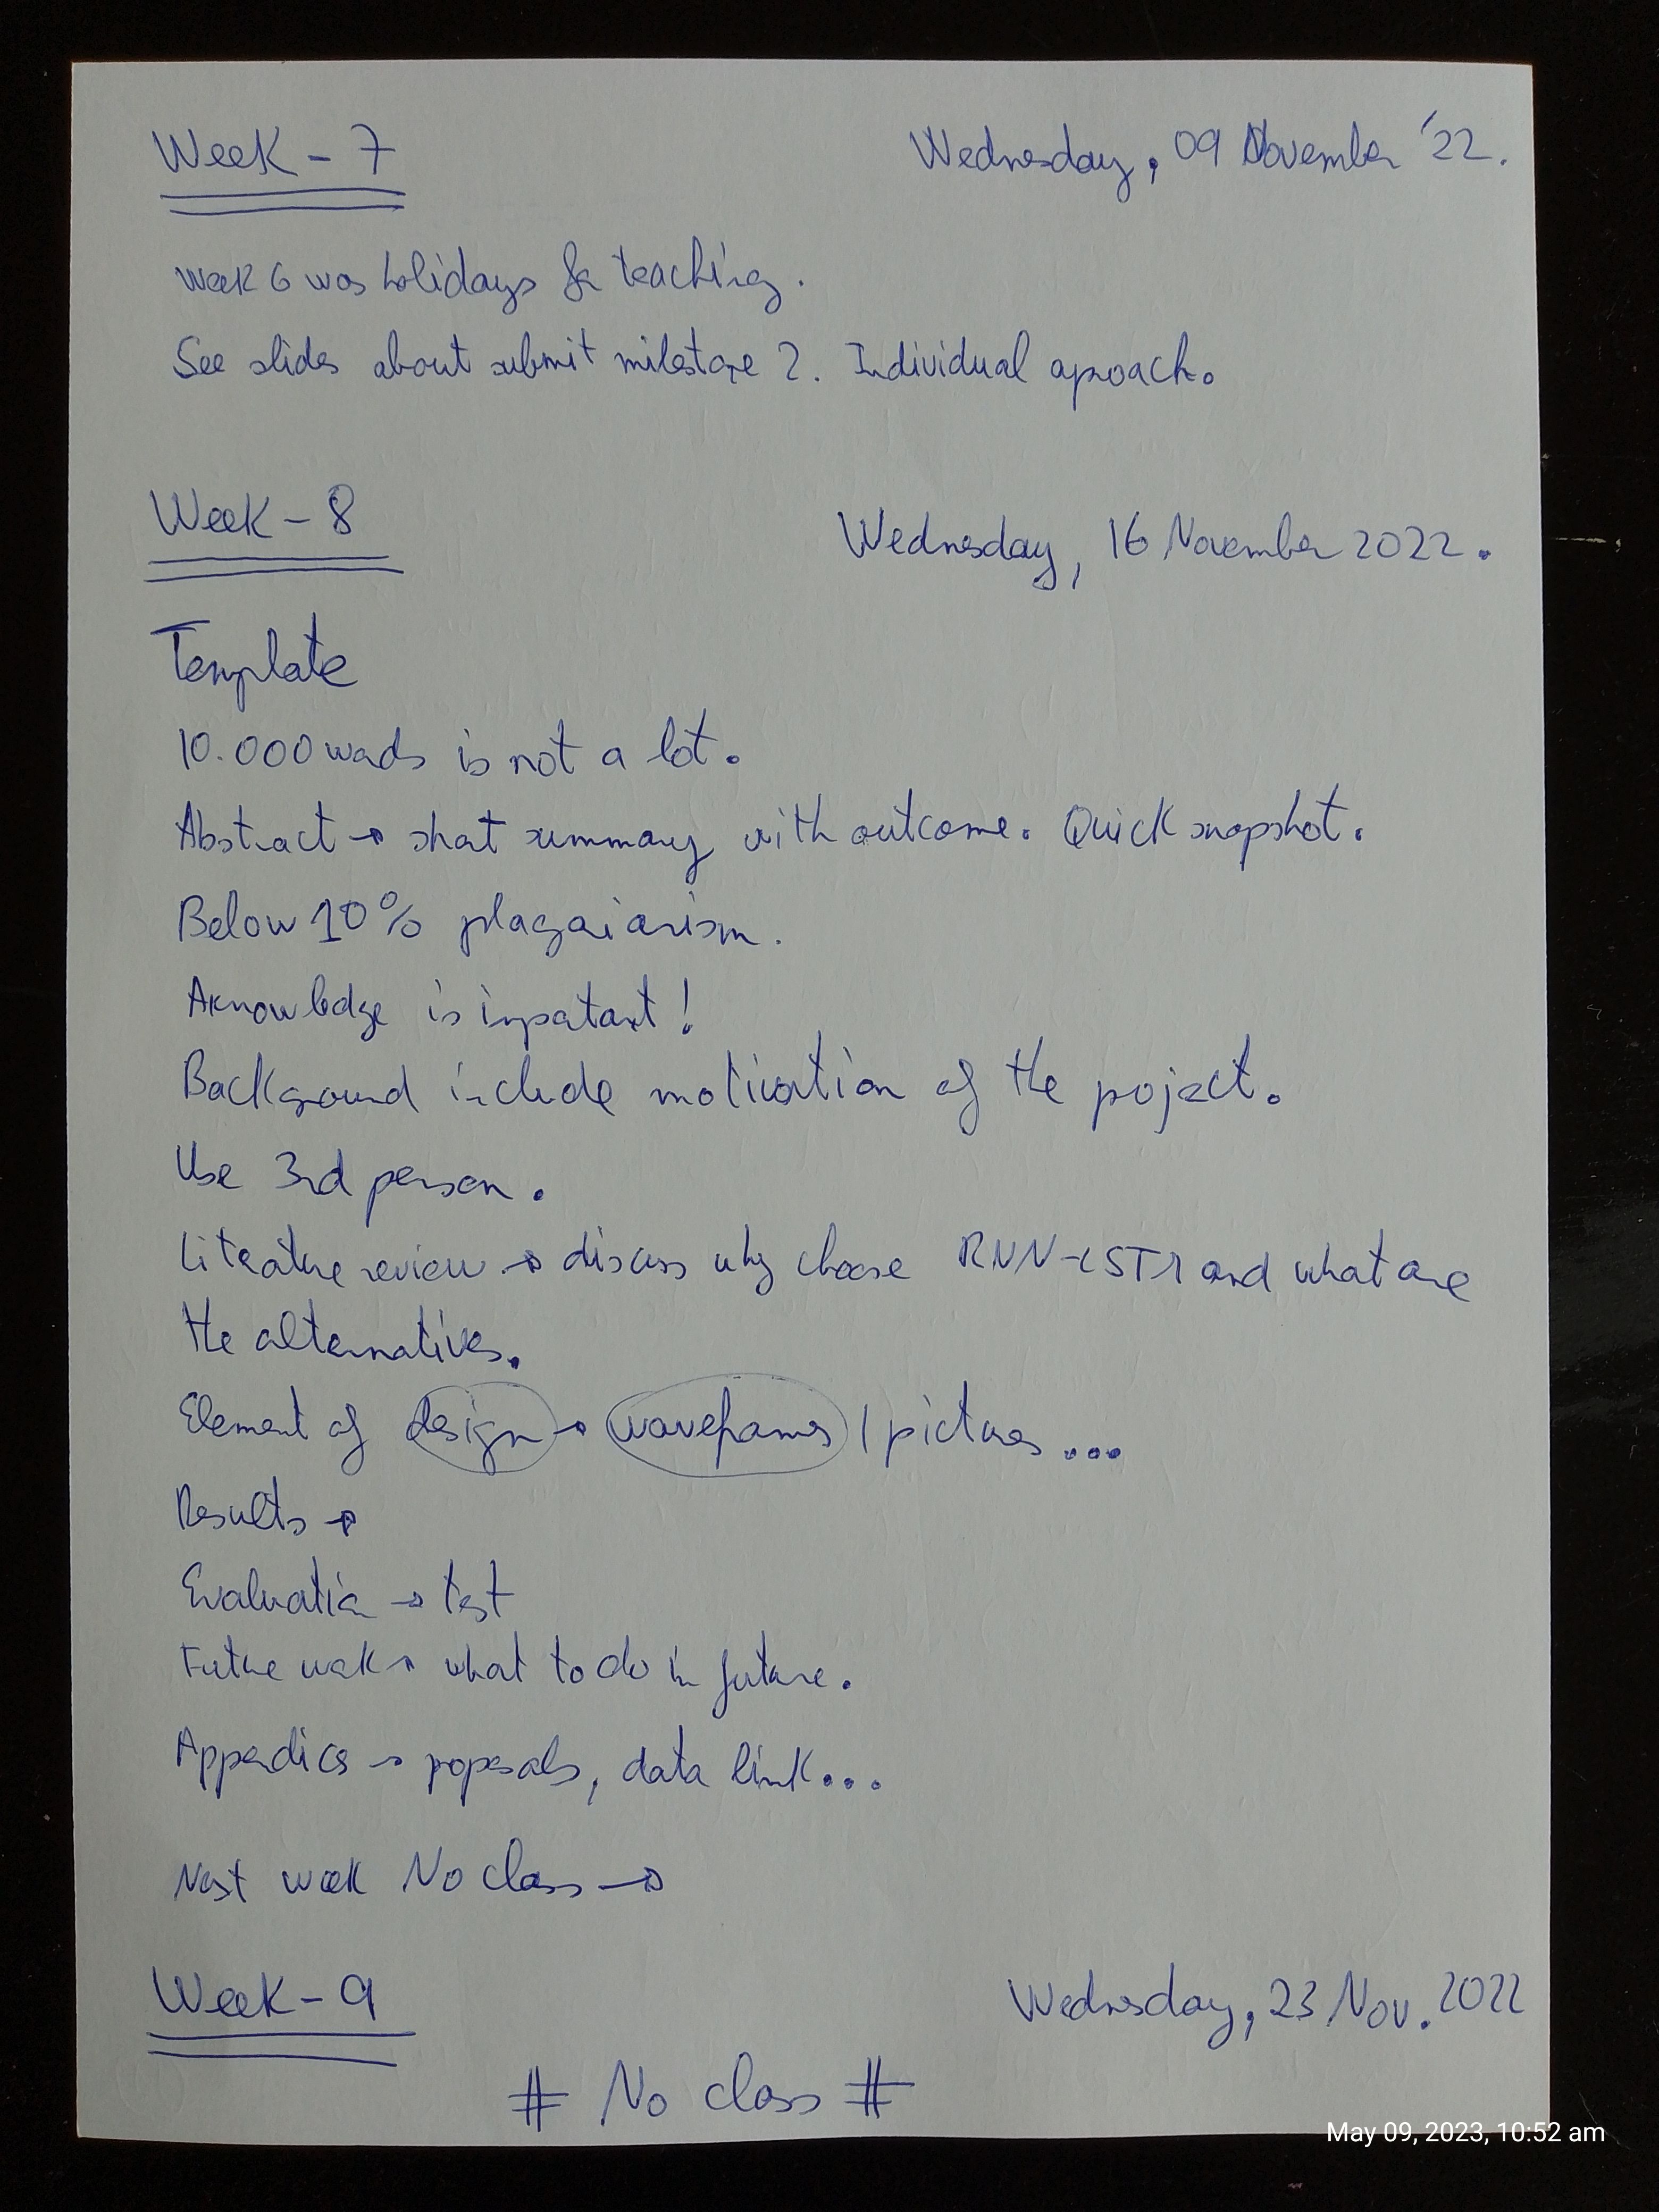 Week - 7
Wednesday, 09 November '22.
Week 6 was holidays for teaching.
See slides about submit milestone 2. Individual aproach.
Week - 8
Wednesday, 16 November 2022.
Template
10.000 words is not a lot.
Abstract → short summary with outcome. Quick snapshot.
Below 10% plagaiarism.
Aknowledge is inportant!
Background include motivation of the project.
Use 3rd person.
Literature review → discuss why choose RNN-LSTM and what are
the alternatives.
Element of design → waveframes / pictures ...
Results →
Evaluation → test
Future work → what to do in future.
Appendics → proposals, data link...
Next week No class →
Week - 9
Wednesday, 23 Nov. 2022
# No class #
May 09, 2023, 10:52 am